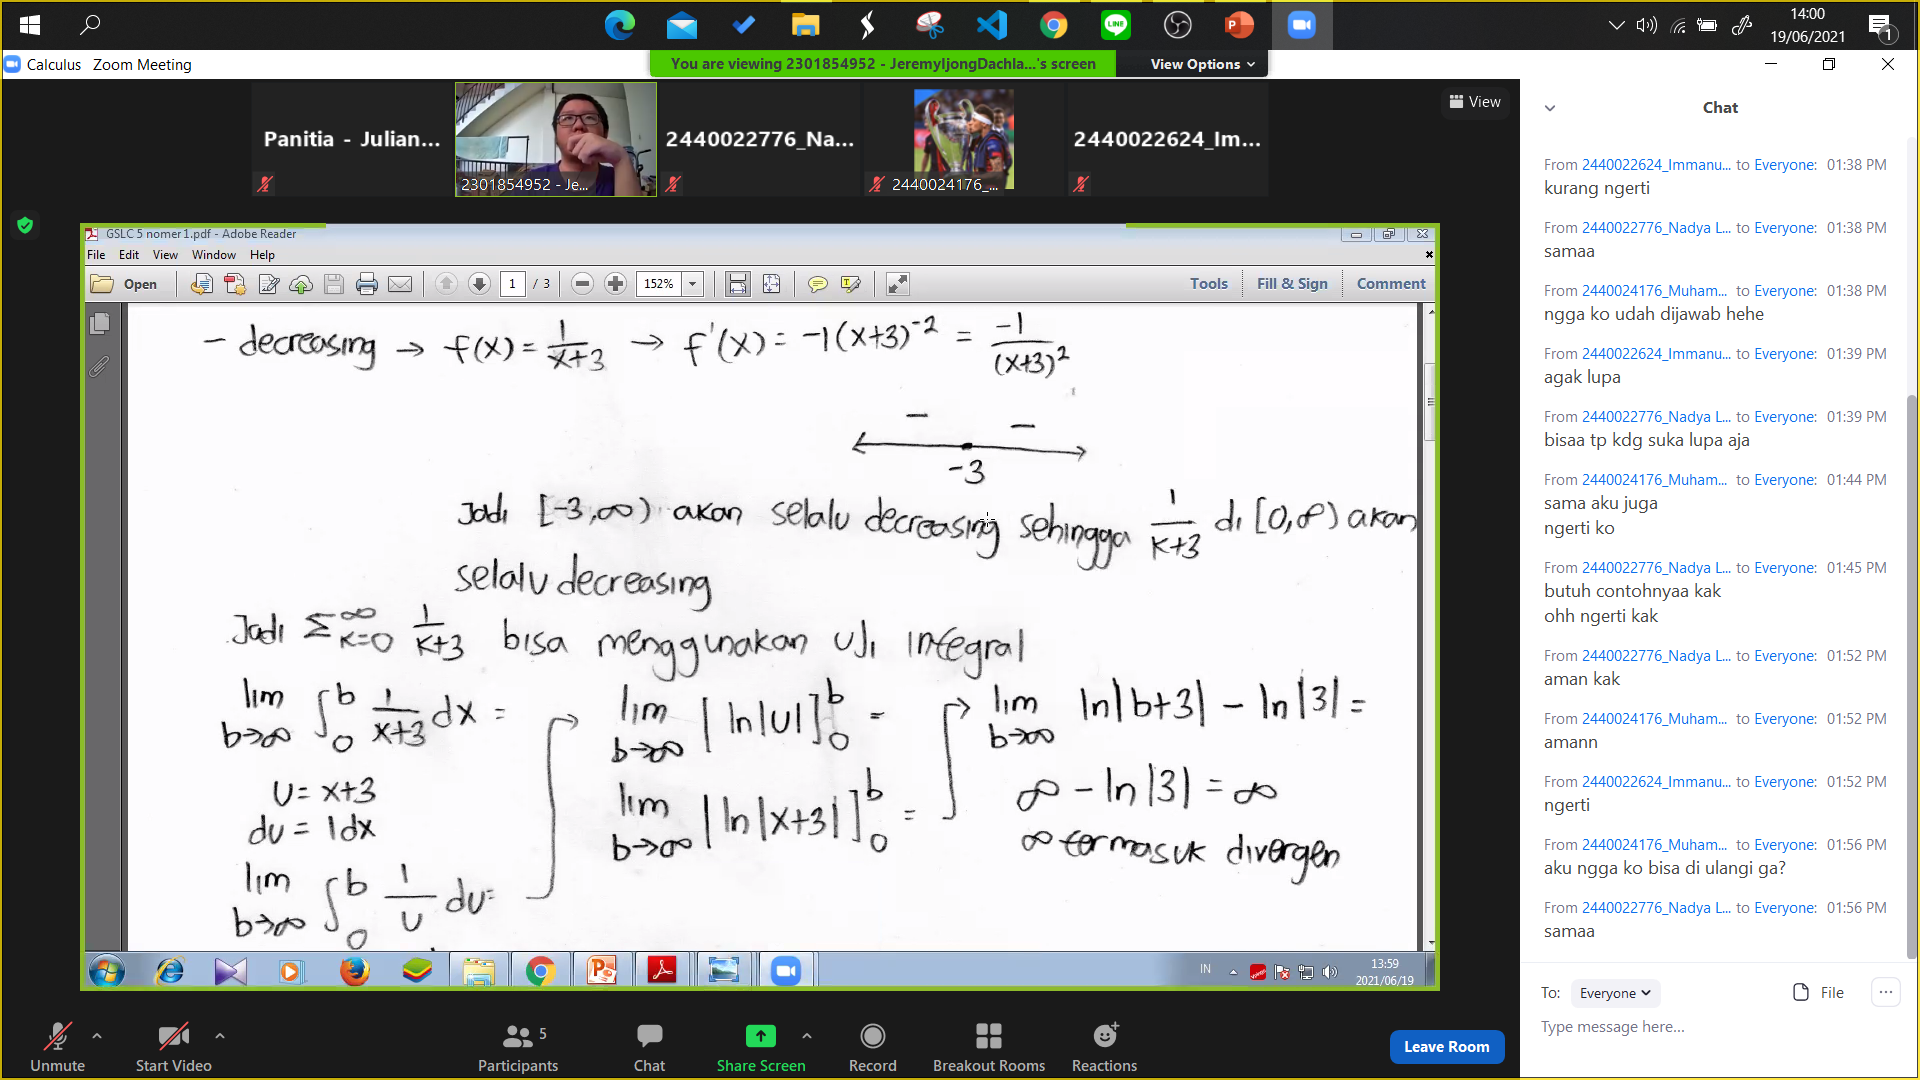 14:00
19/06/2021
1
Calculus Zoom Meeting
You are viewing 2301854952 - JeremyIjongDachla...'s screen
View Options
View
Panitia - Julian...
2301854952 - Je...
2440022776_Na...
2440024176_...
2440022624_Im...
GSLC 5 nomer 1.pdf - Adobe Reader
File Edit View Window Help
Open
1 / 3
152%
Tools Fill & Sign Comment
- decreasing → f(x) = 1/(x+3) → f'(x) = -1(x+3)^-2 = -1/(x+3)^2
- -
-3
Jadi [-3,∞) akan selalu decreasing sehingga 1/(k+3) di [0,∞) akan
selalu decreasing
Jadi Σ k=0 ∞ 1/(k+3) bisa menggunakan uji integral
lim b→∞ ∫ 0 b 1/(x+3) dx =
u = x+3
du = 1dx
lim b→∞ ∫ 0 b 1/u du =
lim b→∞ [ln|u|] 0 b =
lim b→∞ [ln|x+3|] 0 b =
lim b→∞ ln|b+3| - ln|3| =
∞ - ln|3| = ∞
∞ termasuk divergen
IN
13:59
2021/06/19
Unmute
Start Video
Participants
5
Chat
Share Screen
Record
Breakout Rooms
Reactions
Leave Room
Chat
From 2440022624_Immanu... to Everyone: 01:38 PM
kurang ngerti
From 2440022776_Nadya L... to Everyone: 01:38 PM
samaa
From 2440024176_Muham... to Everyone: 01:38 PM
ngga ko udah dijawab hehe
From 2440022624_Immanu... to Everyone: 01:39 PM
agak lupa
From 2440022776_Nadya L... to Everyone: 01:39 PM
bisaa tp kdg suka lupa aja
From 2440024176_Muham... to Everyone: 01:44 PM
sama aku juga
ngerti ko
From 2440022776_Nadya L... to Everyone: 01:45 PM
butuh contohnyaa kak
ohh ngerti kak
From 2440022776_Nadya L... to Everyone: 01:52 PM
aman kak
From 2440024176_Muham... to Everyone: 01:52 PM
amann
From 2440022624_Immanu... to Everyone: 01:52 PM
ngerti
From 2440024176_Muham... to Everyone: 01:56 PM
aku ngga ko bisa di ulangi ga?
From 2440022776_Nadya L... to Everyone: 01:56 PM
samaa
To: Everyone
File
Type message here...